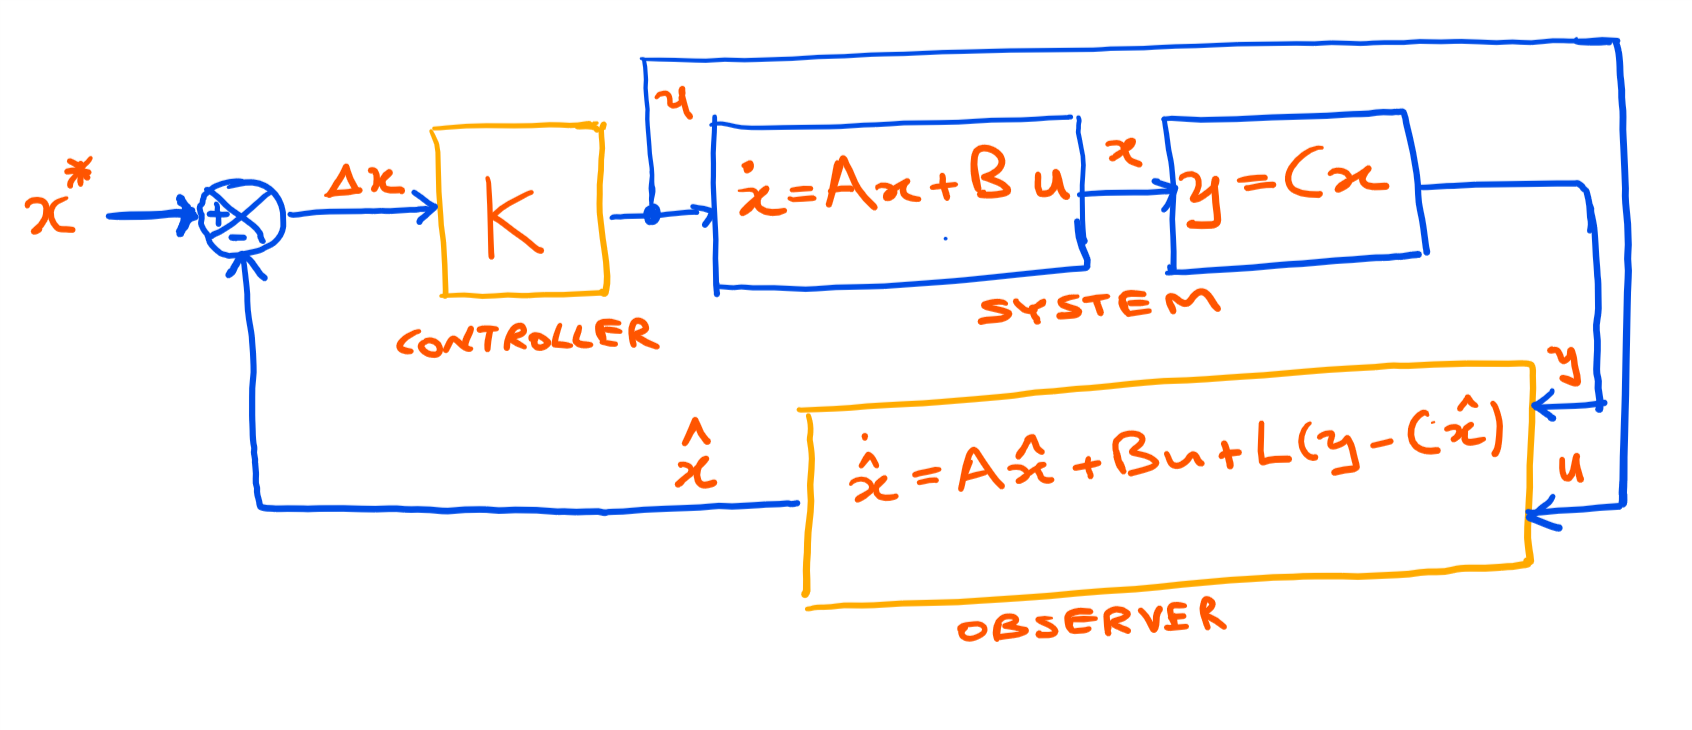 x*
+
-
Δx
K
CONTROLLER
u
ẋ = Ax + Bu
x
y = Cx
SYSTEM
y
u
x̂̇ = Ax̂ + Bu + L(y - Cx̂)
x̂
OBSERVER